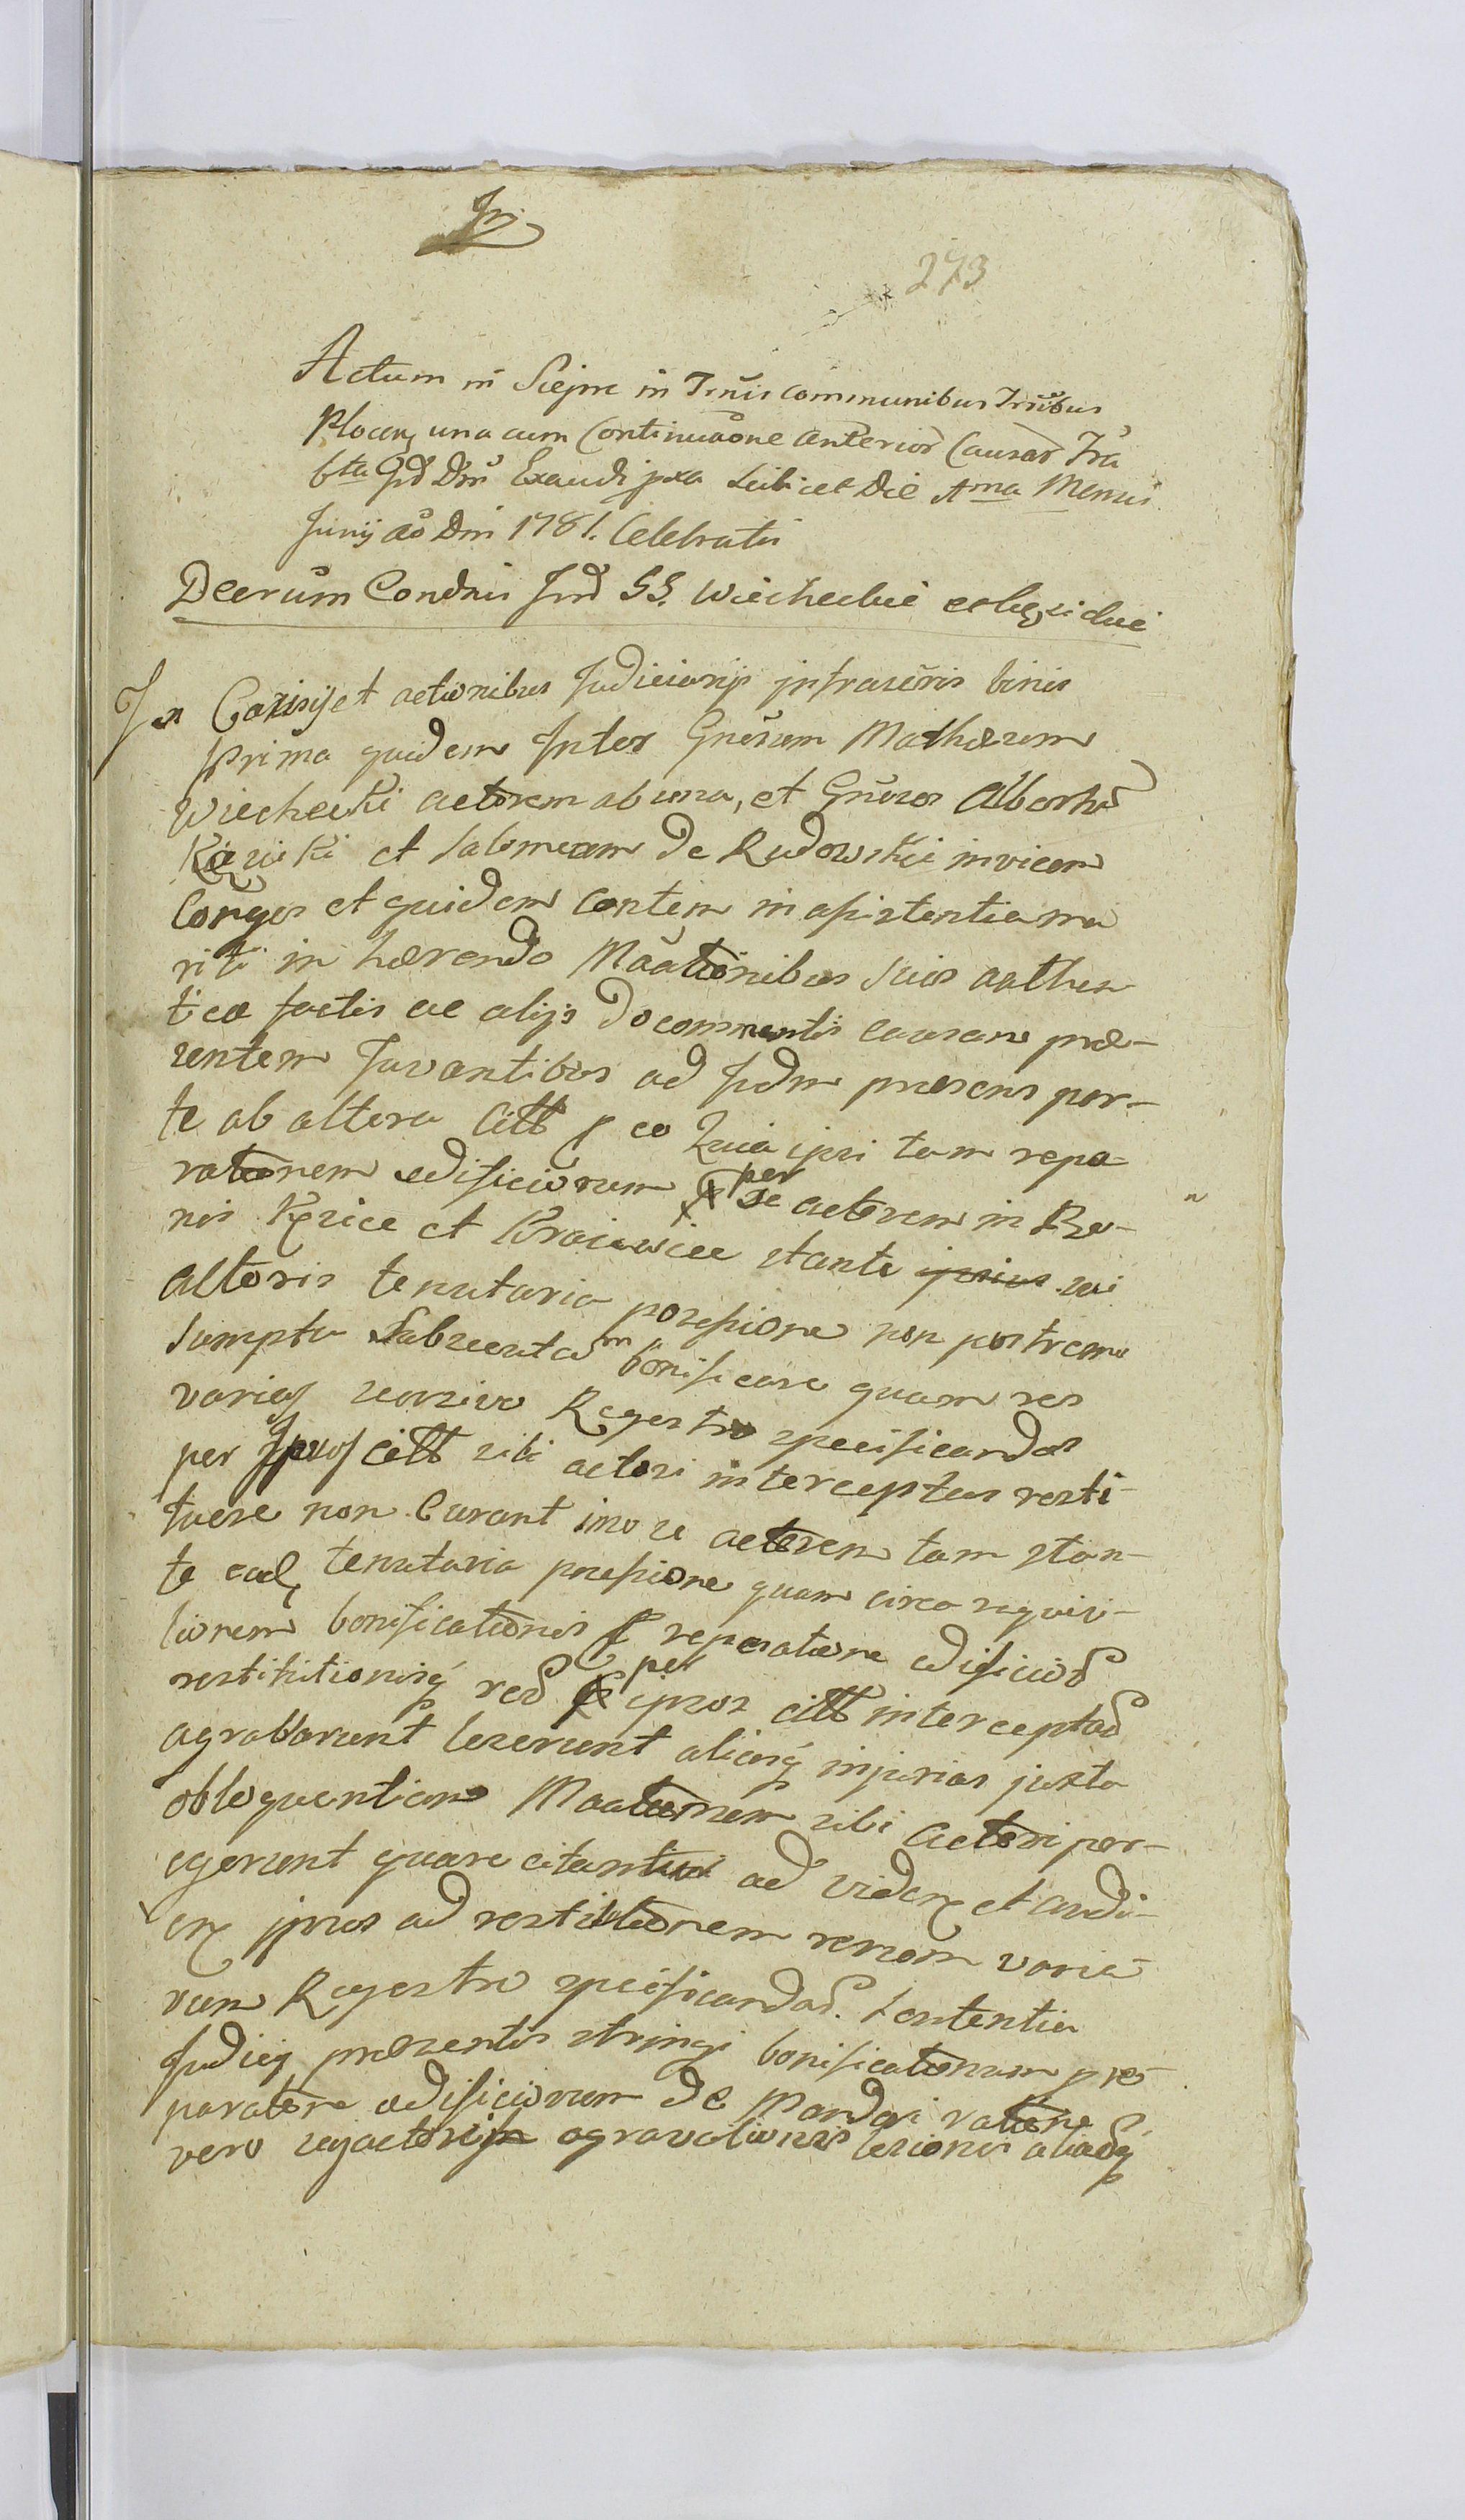 273
Actum in Siepre in Trnis Communibus Trribus
Plocen, una cum Continuaõne anterior Causar Fra
6ta Pd Dm Exaudi pxa scilicet die 4ma Mensis
Junij aõ Dni 1781. Celebratis
Decrum Condnis Jnd SS. Wiecheckie et
In Causis et actionibus Judiciarijs infrascris binis
Prima quidem Inter Gnerum Mathæum
Wiechecki actorem ab una, et Gneros Albertũ
et Salomeam de Rudowskie invicem
Conges et quidem Contem in assistentia ma
riti in hærendo Maãtionibus suis authen
tice factis ac alijs documentis causam præ-
sentem Juvantibus ad Judm præsens par-
te ab altera Citt p eo Quia ipsi tam repa-
rationem ædificiorum per se actorem in Bo-
nis Kęsice et Kraiewice stante ipsius sui
Actoris tenutaria possessione non postremo
sumptu Subsecutam bonificare quam res
varias Registro specificandas
per Ipsos citt sibi actori interceptas resti-
tuere non Curant imo se actorem tam stan-
te ead, tenutaria possessione quam circa requisi-
tionem bonificationis p reparatione ædificior
restitutionisq rer per ipsos citt interceptar
agravarunt læserunt aliasq injurias juxta
obloquentiam Maationem sibi Actori per-
egerunt quare citantur ad vidен et audi-
en ipsos ad restitutionem rerum varia
rum Regestro specificandar. Sententia
Judicij præsentis stringi bonificationem p re
paratione ædificiorum de mandari ratione
vero agravationis læsionis aliarq